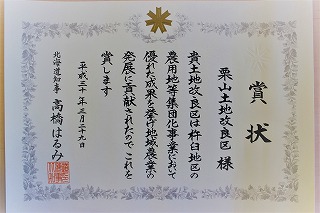 賞状
栗山土地改良区 様
貴土地改良区は杵臼地区の
農用地等集団化事業において
優れた成果を挙げ地域農業の
発展に貢献されたのでこれを
賞します
平成三十年三月二十九日
北海道知事 高橋はるみ